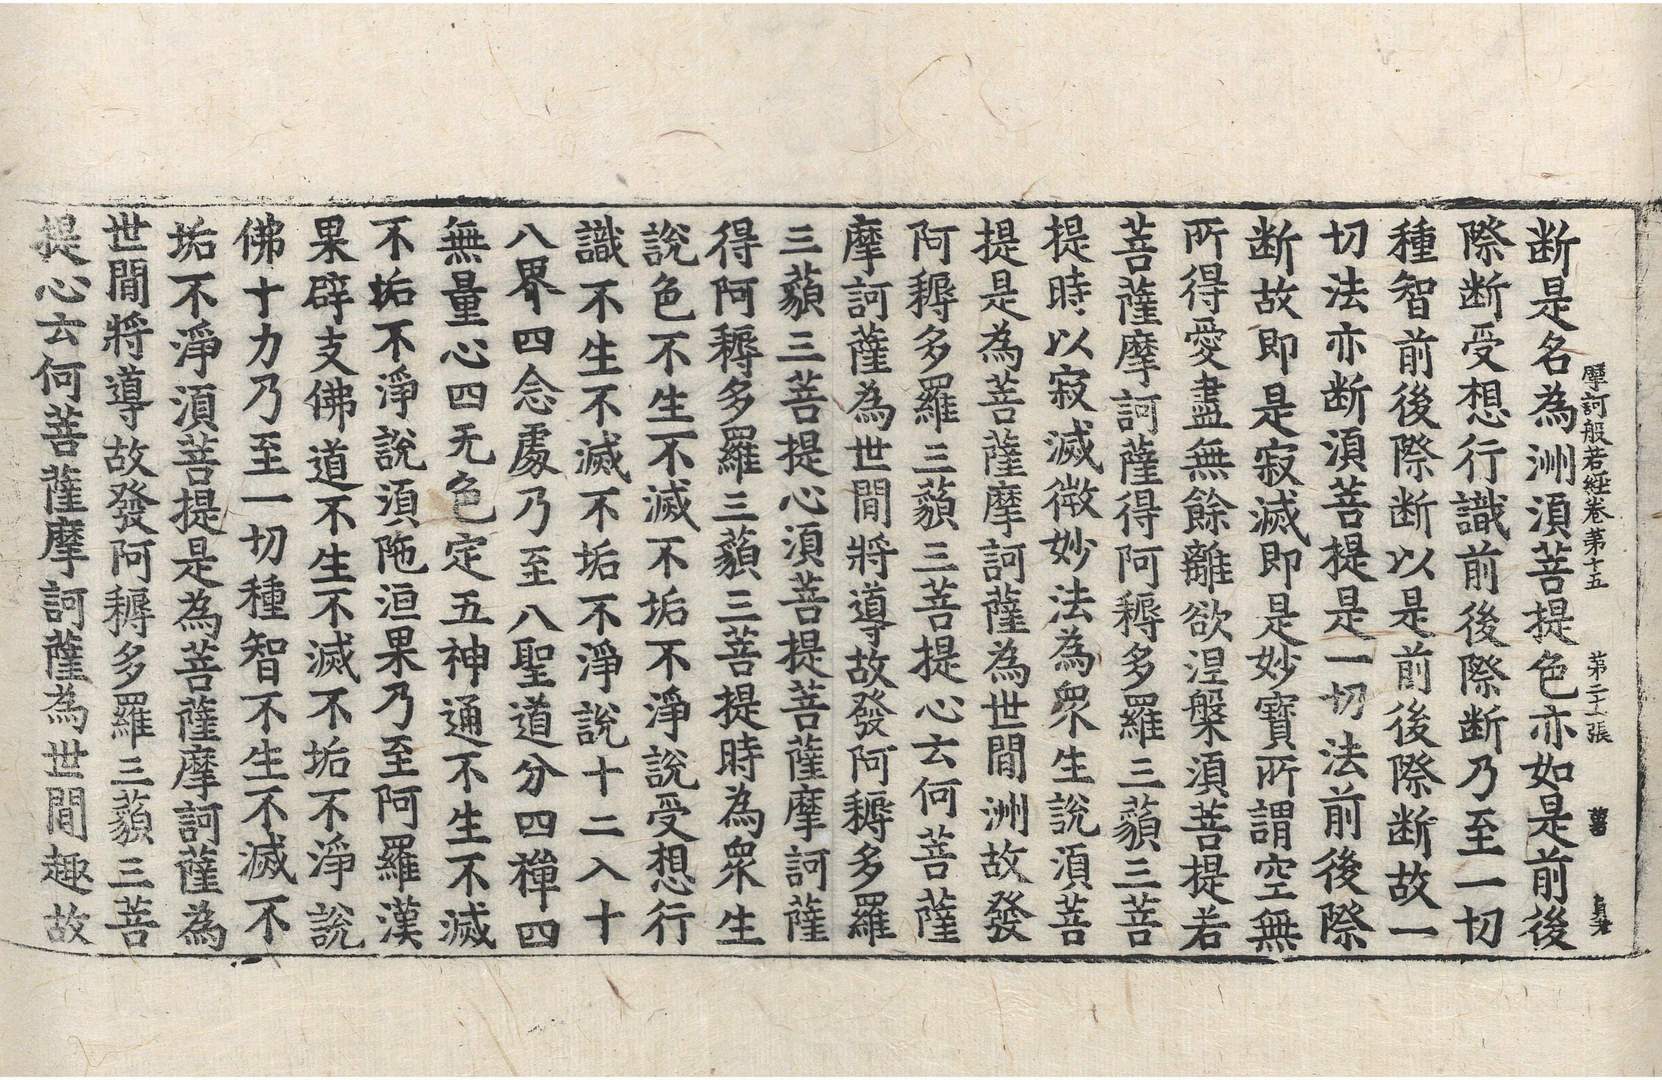 摩訶般若経巻第十五　第二十張　菫　貞才
断是名為洲湏菩提色亦如是前後
際断受想行識前後際断乃至一切
種智前後際断以是前後際断故一
切法亦断湏菩提是一切法前後際
断故即是寂滅即是妙寶所謂空無
所得愛盡無餘離欲涅槃湏菩提若
菩薩摩訶薩得阿耨多羅三藐三菩
提時以寂滅微妙法為衆生說湏菩
提是為菩薩摩訶薩為世間洲故發
阿耨多羅三藐三菩提心云何菩薩
摩訶薩為世間將導故發阿耨多羅
三藐三菩提心湏菩提菩薩摩訶薩
得阿耨多羅三藐三菩提時為衆生
說色不生不滅不垢不淨說受想行
識不生不滅不垢不淨說十二入十
八界四念處乃至八聖道分四禪四
無量心四无色定五神通不生不滅
不垢不淨說湏陁洹果乃至阿羅漢
果辟支佛道不生不滅不垢不淨說
佛十力乃至一切種智不生不滅不
垢不淨湏菩提是為菩薩摩訶薩為
世間將導故發阿耨多羅三藐三菩
提心云何菩薩摩訶薩為世間趣故